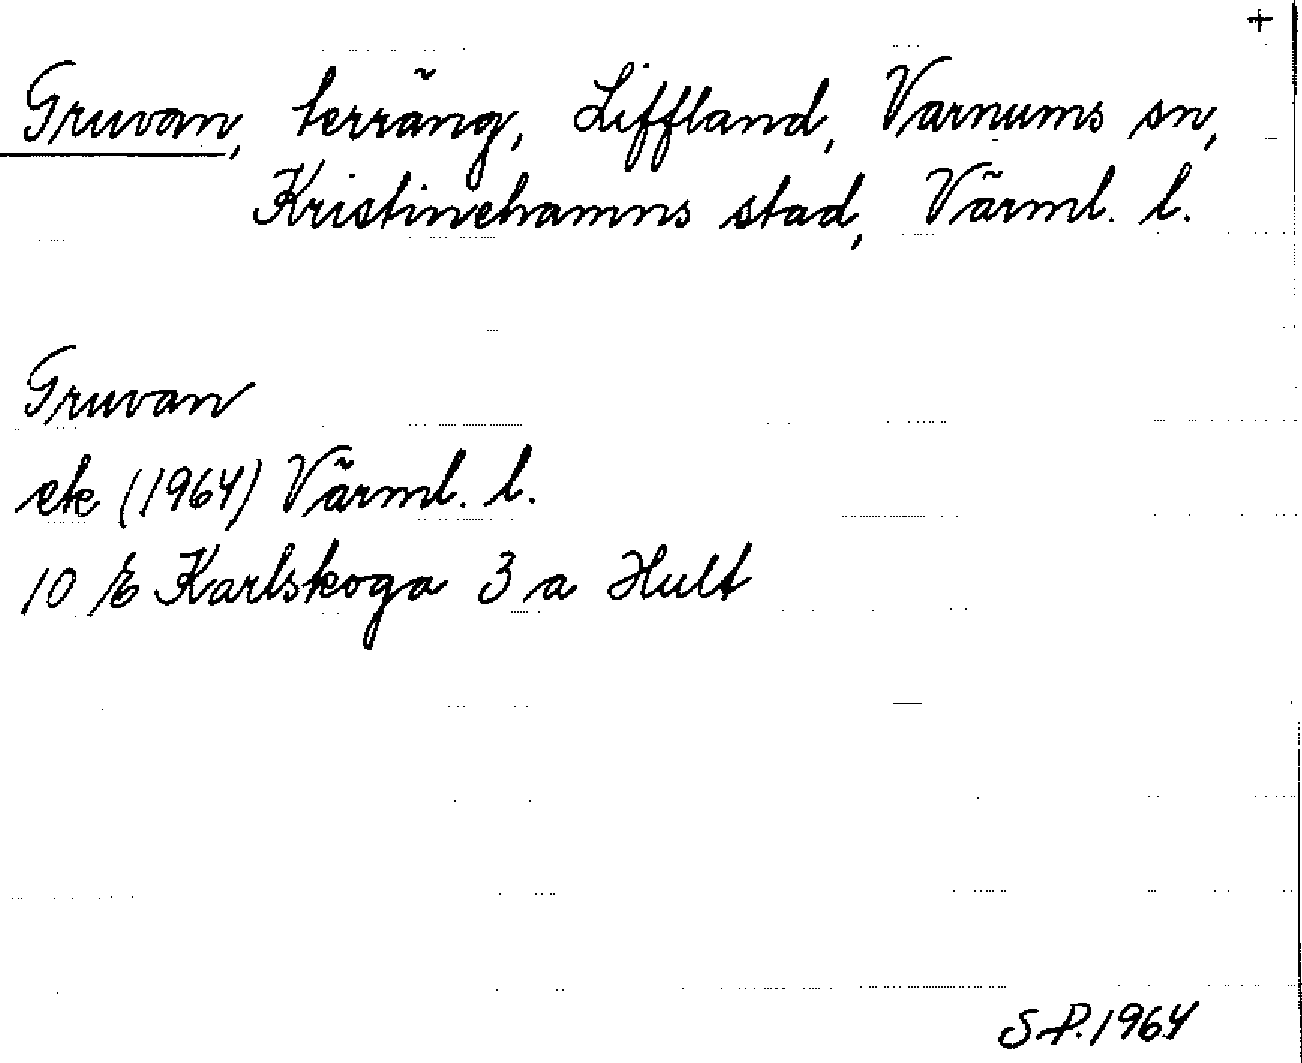 +
Gruvan, terräng, Liffland, Varnums sn,
Kristinehamns stad, Värml. l.
Gruvan
ek (1964) Värml. l.
10 E Karlskoga 3 a Hult
S.P. 1964